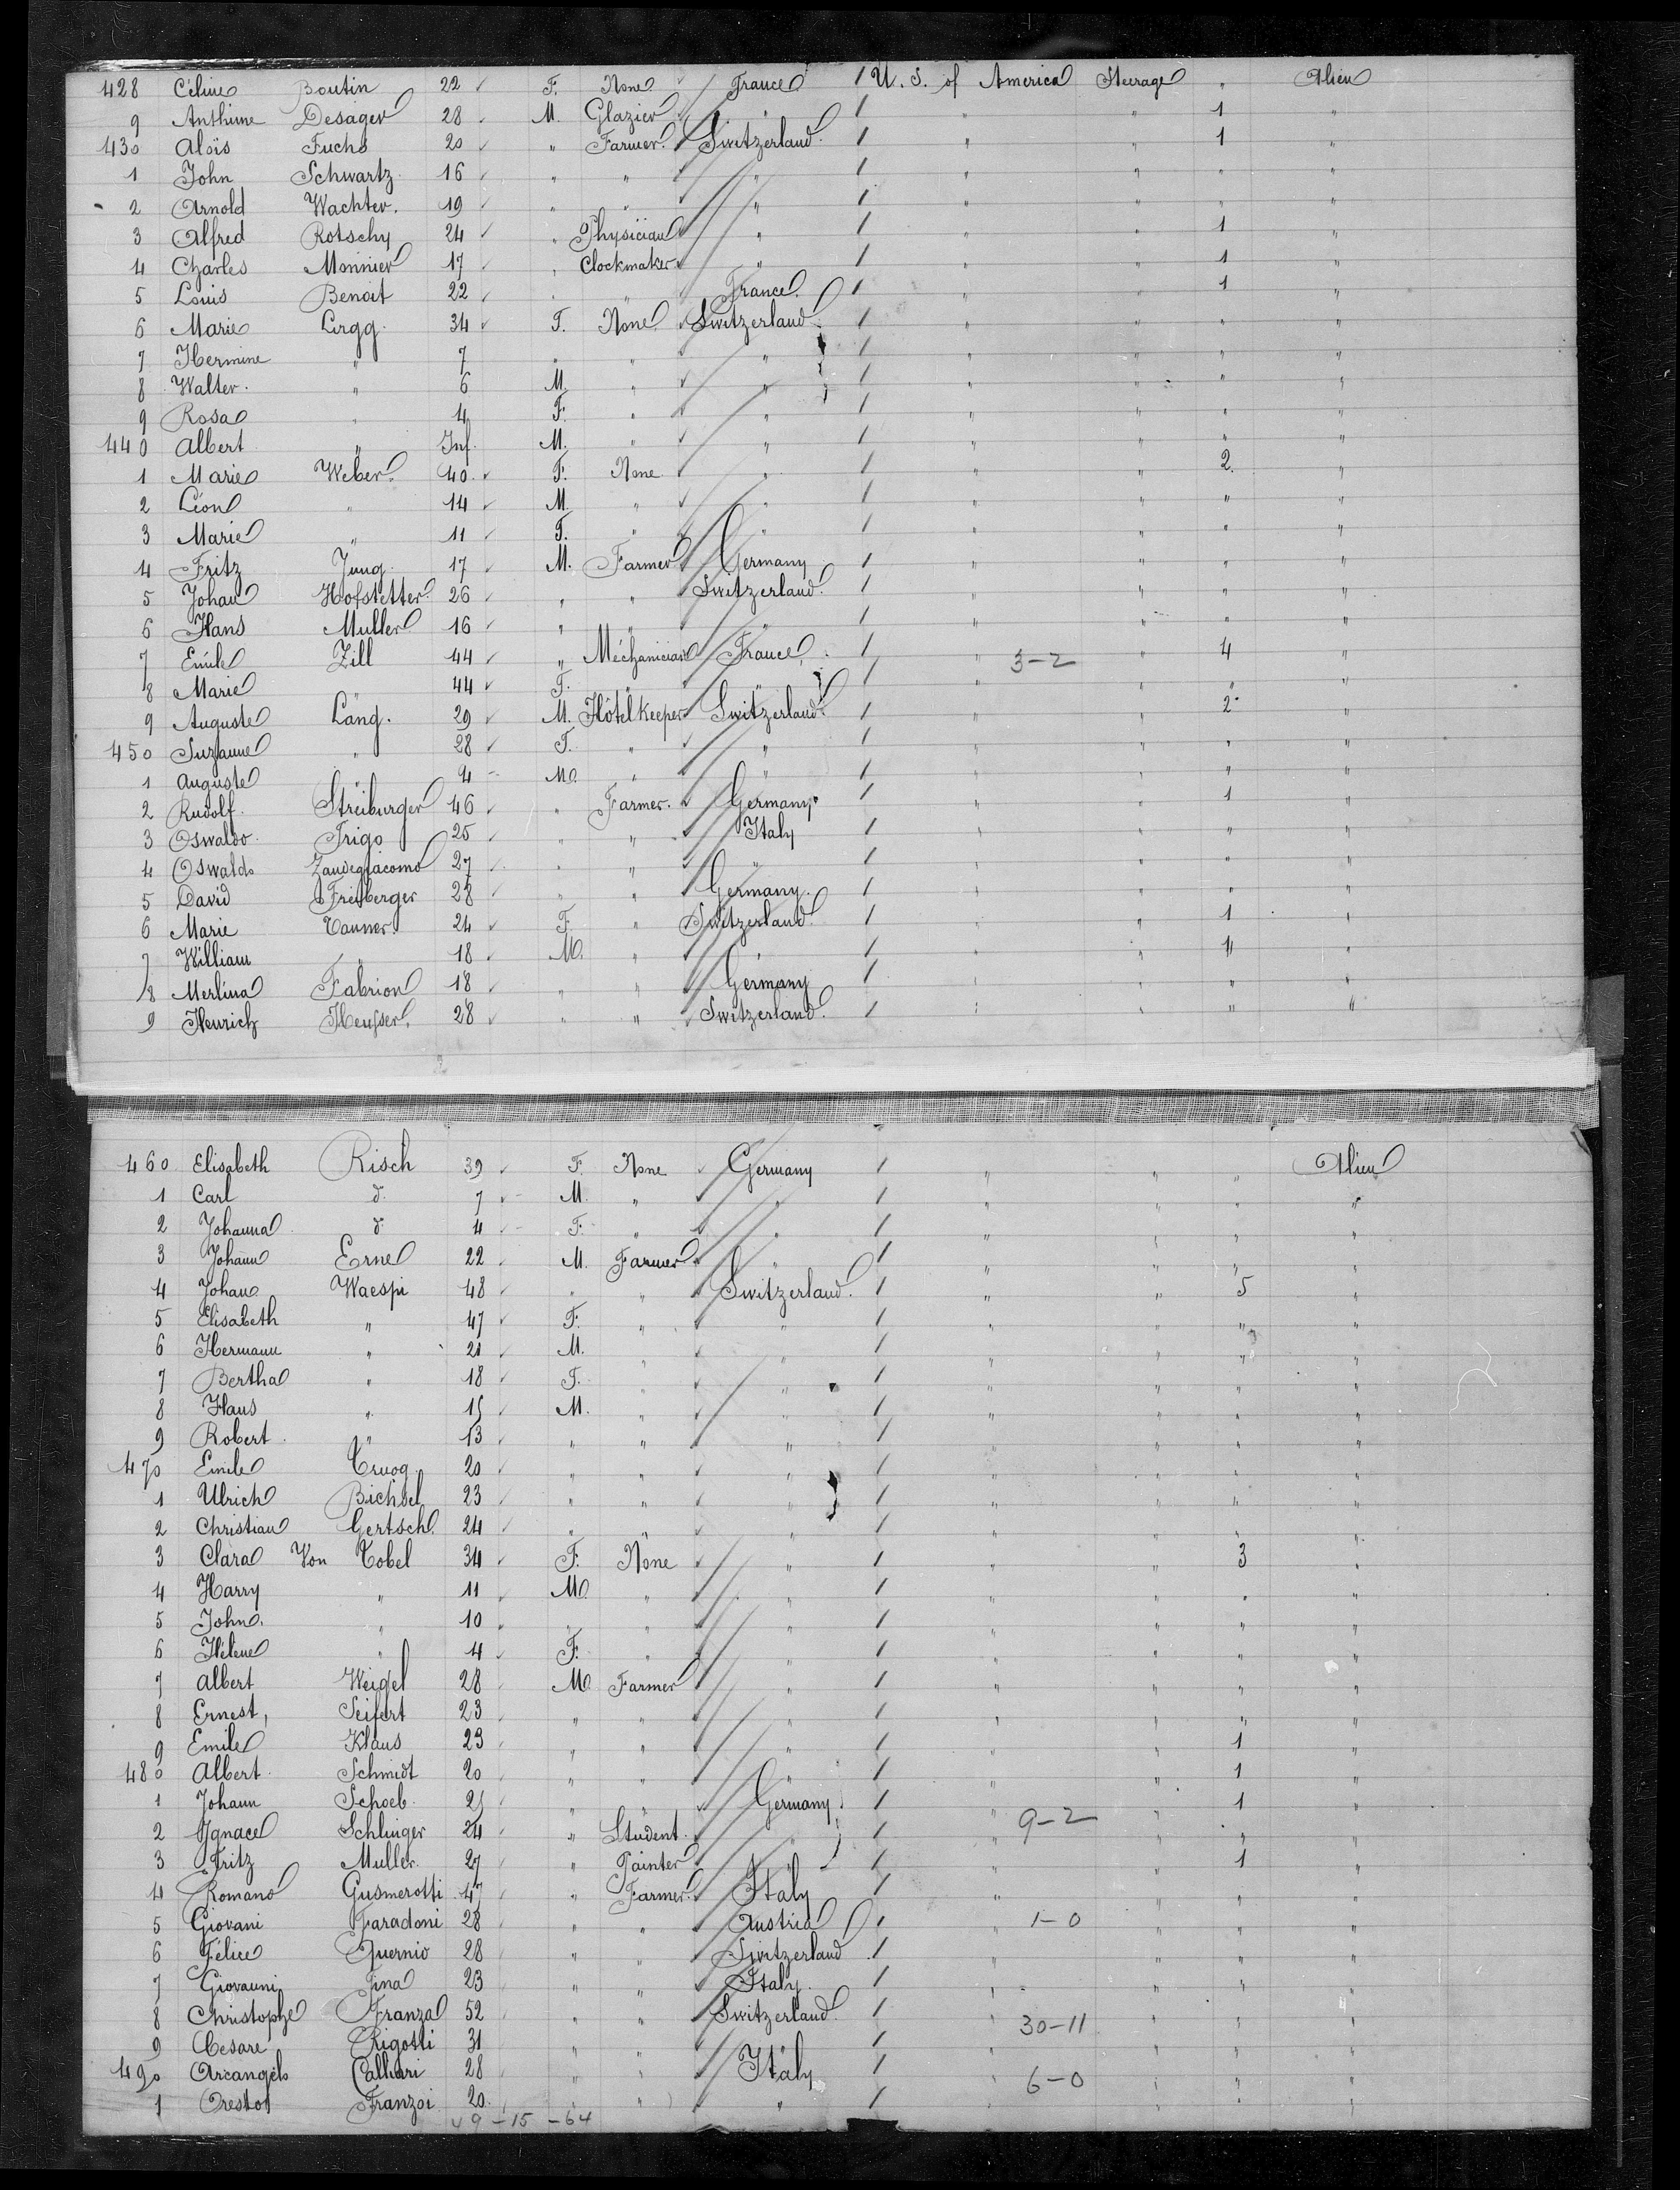 428 Céline Boutin 22 F. None France U.S. of America Steerage " Alien
9 Anthime Desager 28 M. Glazier " " " 1 "
430 Aloïs Fuchs 20 " Farmer Switzerland " " 1 "
1 John Schwartz 16 " " " " " " "
2 Arnold Wachter. 19 " " " " " " "
3 Alfred Rotschy 24 " Physician " " " 1 "
4 Charles Monnier 17 " Clockmaker " " " 1 "
5 Louis Benoit 22 " " France " " 1 "
6 Marie Lirgg. 34 F. None Switzerland " " " "
7 Hermine " 7 " " " " " " "
8 Walter. " 6 M. " " " " " "
9 Rosa " 4 F. " " " " " "
440 Albert " Inf. M. " " " " " "
1 Marie Weber 40 F. None " " " 2. "
2 Léon " 14 M. " " " " " "
3 Marie " 11 F. " " " " " "
4 Fritz Jung 17 M. Farmer Germany " " " "
5 Johan Hofstetter 26 " " Switzerland " " " "
6 Hans Muller 16 " " " " " " "
7 Emile Zill 44 " Méchanician France " 3-2 " 4 "
8 Marie " 44 F. " " " " " "
9 Auguste Läng. 29 M. Hôtelkeeper Switzerland " " 2 "
450 Suzanne " 28 F. " " " " " "
1 Auguste " 4 M. " " " " " "
2 Rudolf. Streiburger 46 " Farmer. Germany " " 1 "
3 Oswaldo Trigo 25 " " Italy " " " "
4 Oswaldo Zandegiacomo 27 " " " " " " "
5 David Freiberger 28 " " Germany. " " " "
6 Marie Tanner 24 F. " Switzerland " " 1 "
7 William " 18 M. " " " " " "
8 Merlina Fabrion 18 " " Germany " " " "
9 Heinrich Heusser. 28 " " Switzerland. " " " "
460 Elisabeth Risch 39 F. None Germany " " " Alien
1 Carl d. 7 M. " " " " " "
2 Johanna d. 4 F. " " " " " "
3 Johann Erne 22 M. Farmer " " " " "
4 Johan Waespi 48 " " Switzerland. " " 5 "
5 Elisabeth " 47 F. " " " " " "
6 Hermann " 21 M. " " " " " "
7 Bertha " 18 F. " " " " " "
8 Hans " 15 M. " " " " " "
9 Robert " 13 " " " " " " "
470 Emile Truog 20 " " " " " " "
1 Ulrich Bichsel 23 " " " " " " "
2 Christian Gertsch 24 " " " " " " "
3 Clara Von Tobel 34 F. None " " " 3 "
4 Harry " 11 M. " " " " " "
5 John. " 10 " " " " " " "
6 Hélène " 4 F. " " " " " "
7 Albert Weigel 28 M. Farmer " " " " "
8 Ernest, Seifert 23 " " " " " " "
9 Emile Klaus 23 " " " " " 1 "
480 Albert Schmidt 20 " " " " " 1 "
1 Johann Schoeb 25 " " Germany " " 1 "
2 Ignace Schlinger 24 " Student. " " 9-2 " " "
3 Fritz Muller 27 " Painter " " " 1 "
4 Romano Gusmerotti 47 " Farmer. Italy " " " "
5 Giovani Faradoni 28 " " Austria " 1-0 " " "
6 Félice Guernio 28 " " Switzerland " " " "
7 Giovanni Fina 23 " " Italy. " " " "
8 Christophe Franza 52 " " Switzerland. " 30-11 " " "
9 Cesare Rigotti 31 " " " " " " "
490 Arcangelo Calliari 28 " " Italy " 6-0 " " "
1 Oresto Franzoi 20. " " " " " " "
49-15-64